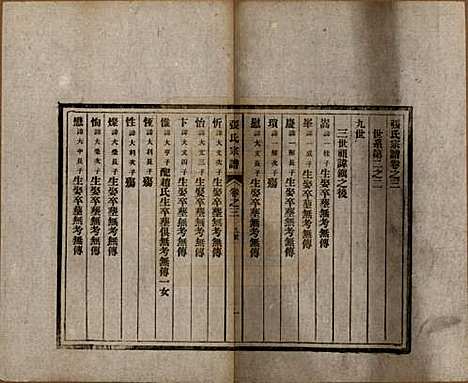 張氏宗譜卷之三
世系第二之二
九世
三世祖諱鎮之後
嵩 諱一柱子 生娶卒葬無考無傳
峯 生娶卒葬無考無傳
慶 生娶卒葬無考無傳
瑣 次子 殤
慰 諱大文長子 生娶卒葬無考無傳
張氏宗譜 卷之三 九世 一
忻 諱大文次子 生娶卒葬無考無傳
怡 諱大文三子 生娶卒葬無考無傳
卞 諱大文四子 生娶卒葬無考無傳
惟 諱大亨子 配趙氏生卒葬俱無考無傳一女
恆 諱大科次子 殤
性 諱大科三子 殤
燦 諱大榮長子 生娶卒葬無考無傳
恂 諱大榮次子 生娶卒葬無考無傳
戀 諱大中長子 生娶卒葬無考無傳